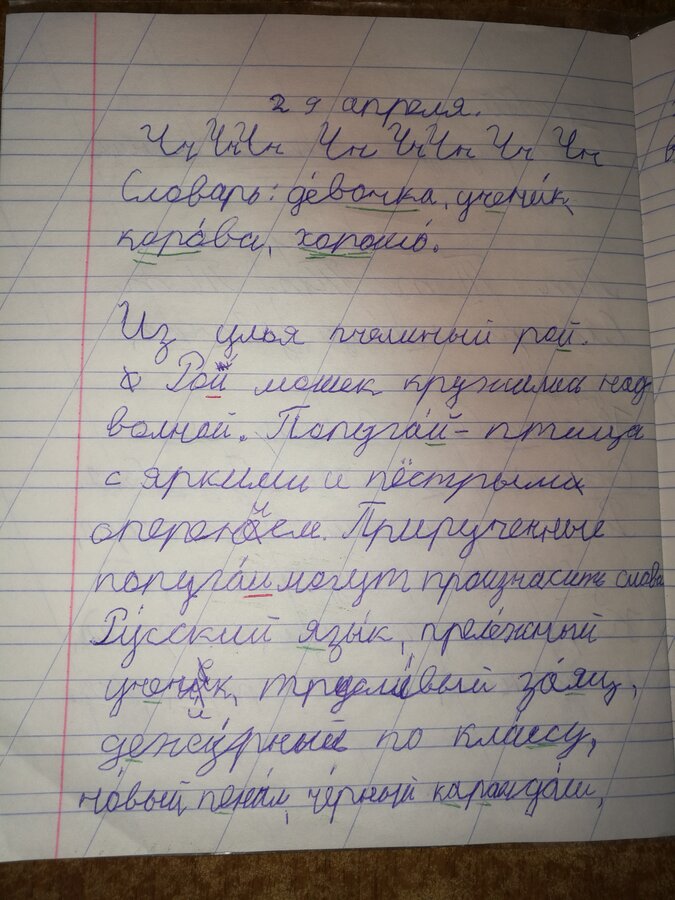 29 апреля.
Чч Чч Чн Чн Чч Чн Чч Чн
Словарь: де́вочка, учени́к,
коро́ва, хорошо́.
Из улья пчелиный рой.
Рой мошек кружила над
волной. Попуга́й - птица
с яркими и пёстрыми
опереньем. Прирученные
попуга́и могут произнасить слова
Ру́сский язы́к, преле́жный
учени́к, трусли́вый за́яц,
дежу́рный по кла́ссу,
но́вый пена́л, чёрный каранда́ш,